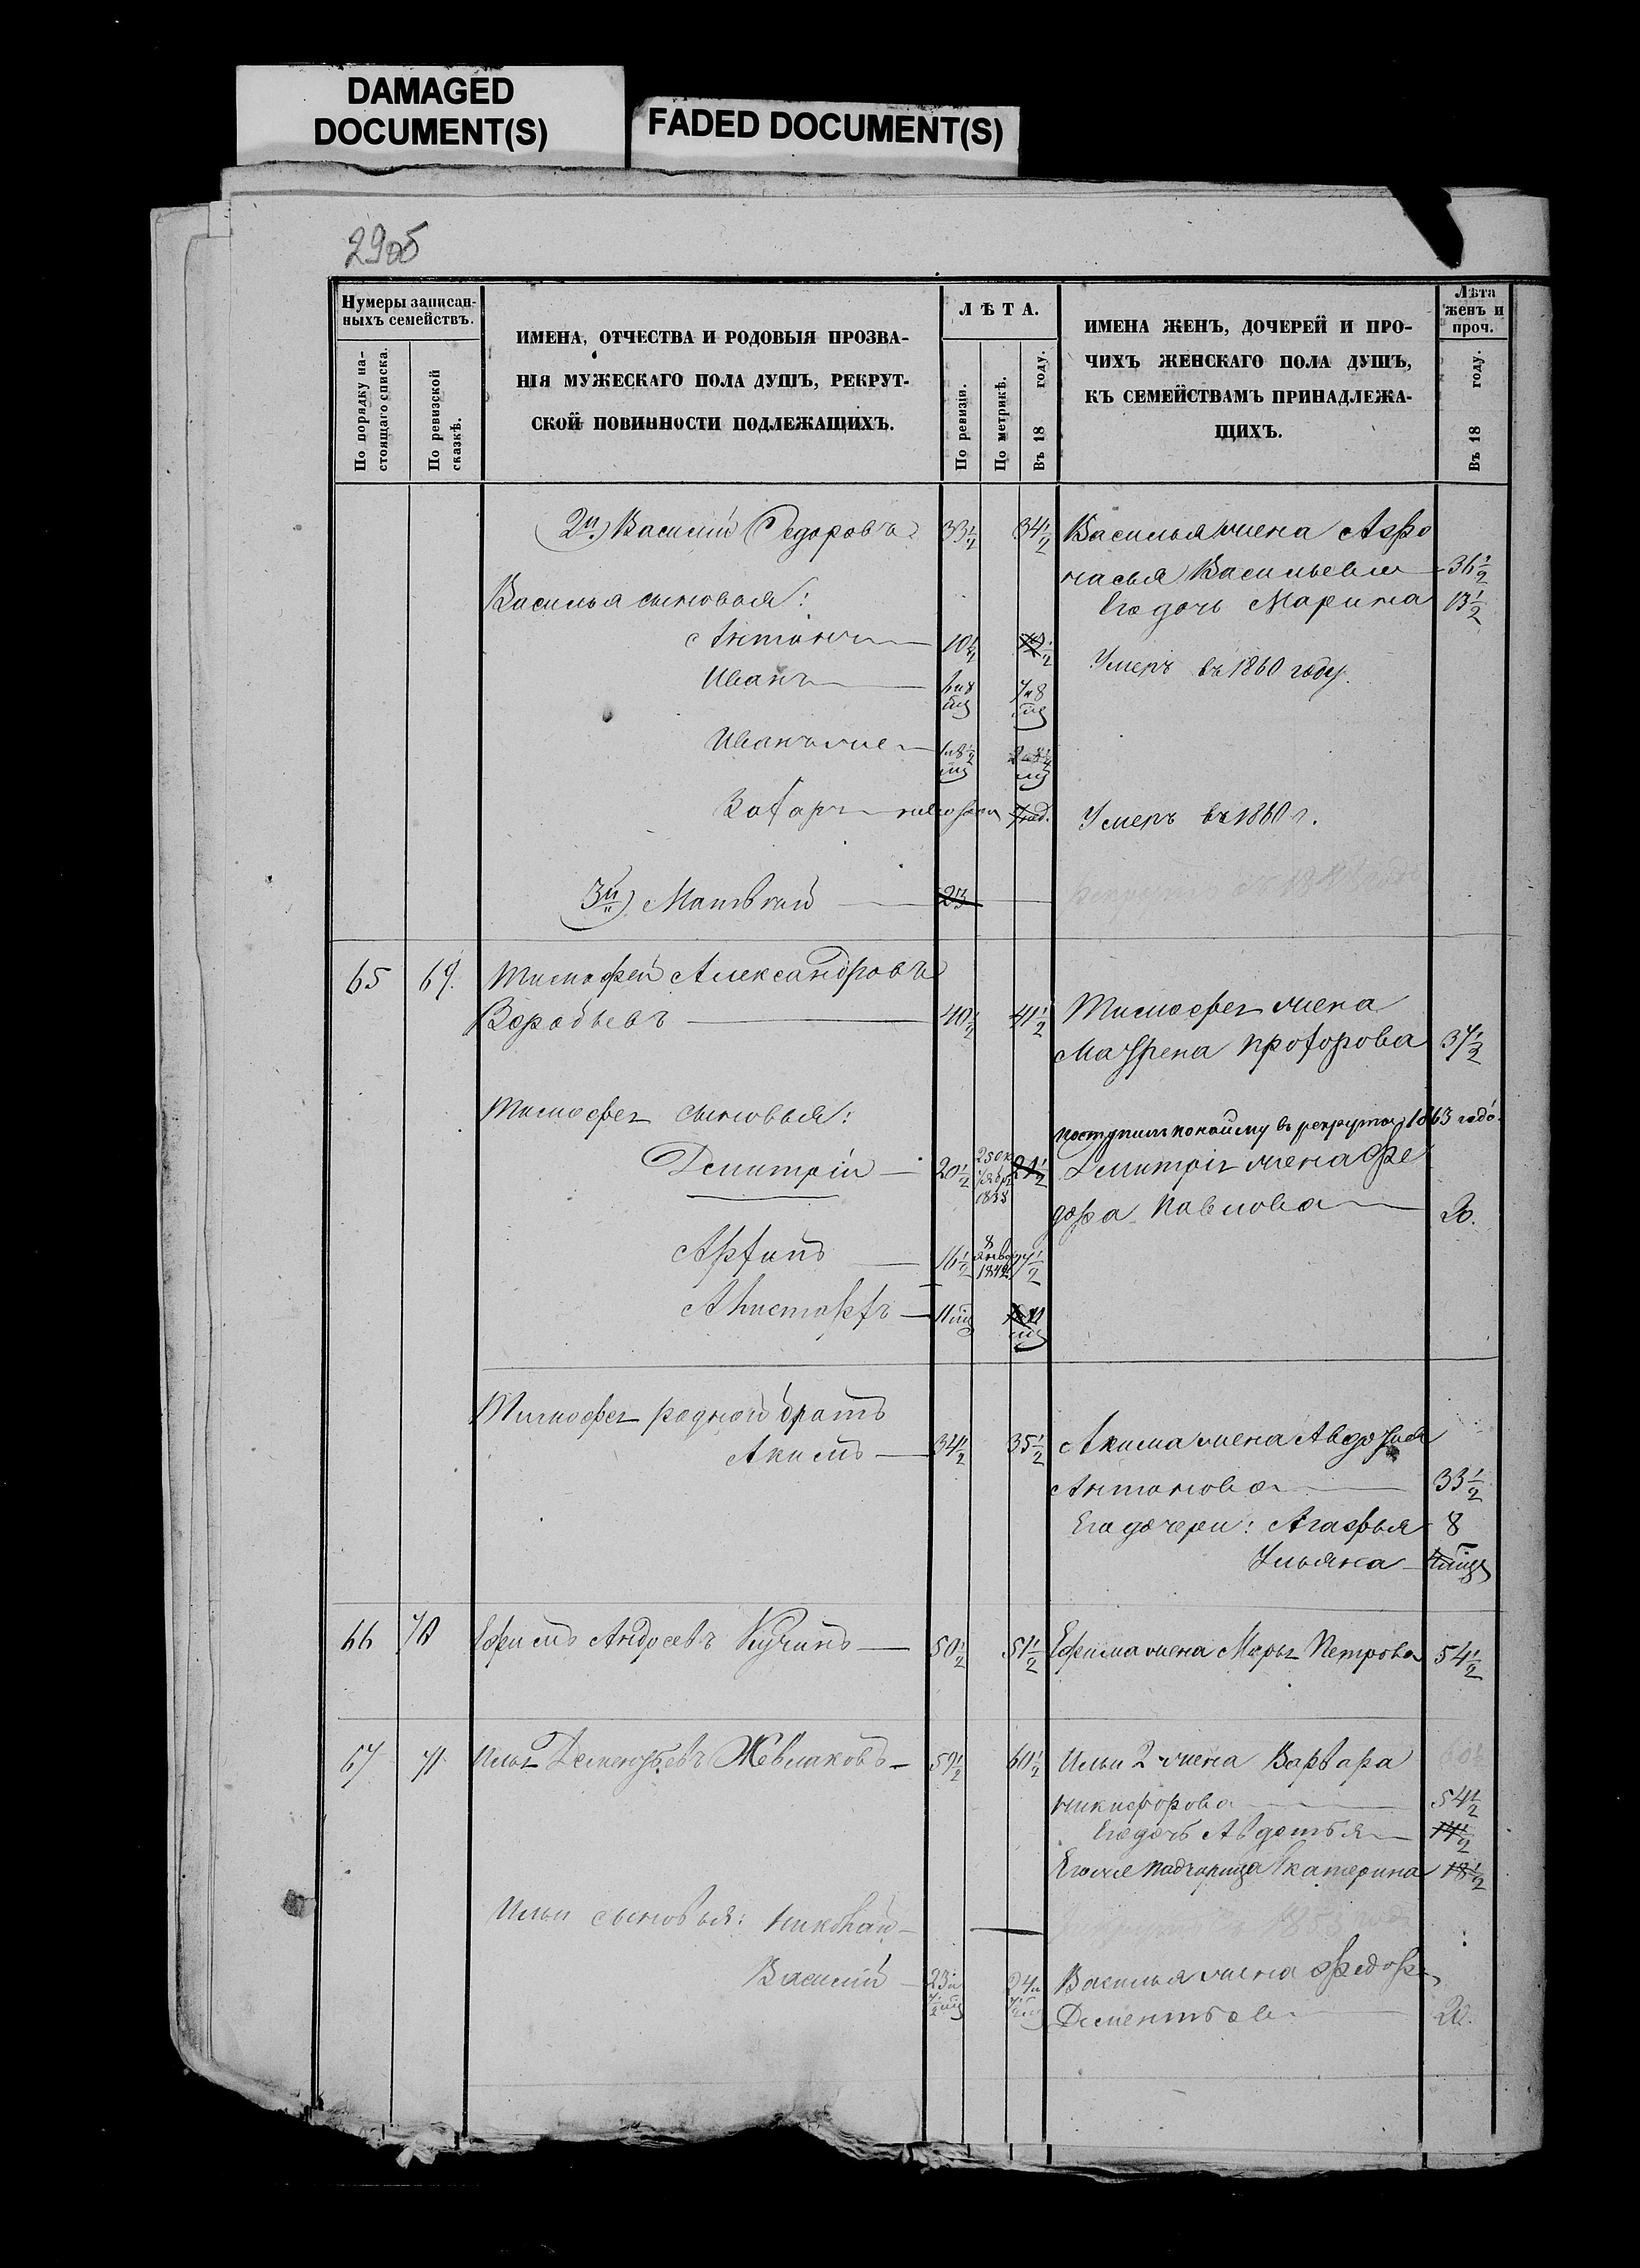 DAMAGED
DOCUMENT(S)
FADED DOCUMENT(S)
29об
Нумеры записан-
ныхъ семействъ.
По порядку на-
стоящаго списка.
По ревизской
сказкѣ.
ИМЕНА, ОТЧЕСТВА И РОДОВЫЯ ПРОЗВА-
НІЯ МУЖЕСКАГО ПОЛА ДУШЪ, РЕКРУТ-
СКОЙ ПОВИННОСТИ ПОДЛЕЖАЩИХЪ.
ЛѢТА.
По ревизіи.
По метрикѣ.
Въ 18 году.
ИМЕНА ЖЕНЪ, ДОЧЕРЕЙ И ПРО-
ЧИХЪ ЖЕНСКАГО ПОЛА ДУШЪ,
КЪ СЕМЕЙСТВАМЪ ПРИНАДЛЕЖА-
ЩИХЪ.
Лѣта
женъ и
проч.
Въ 18 году.
2й) Василій Федоровъ 33½ 34½ Василья жена Афро
насья Васильева 36½
Василья сыновья: Его дочь Марина 13½
Антонъ 10½
Умеръ въ 1860 году.
Иванъ 6и8 мц 7и8 мц
Иванъ же 1и8½ мц
Захаръ Умеръ въ 1860 г.
3й) Матвѣй 23
65 69. Тимофей Александровъ
Воробьевъ 40½ 41½ Тимофея жена
Маврена Прохорова 37½
Тимофея сыновья:
поступилъ по найму въ рекруты 1863 годо.
Дмитрій 20½ 25 октября 1838 21½ Дмитрія жена Фе
дора Павлова 20.
Архипъ 16½ 8 1842 17½
Аристархъ 11 мц
Тимофея родной братъ
Акимъ 34½ 35½ Акима жена Авдотья
Антонова 33½
Его дочери: Агафья 8
Ульяна
66 70 Ефимъ Андреевъ Кучинъ 50½ 51½ Ефима жена Марья Петрова 54½
67 71. Илья Дементьевъ Жевлаковъ 59½ 60½ Ильи 2 жена Варвара
Никифорова 54½
Его дочь Авдотья 14½
Его же падчерица Катерина 18½
Ильи сыновья: Николай
Василій 23и 24и Василья жена Федора
Дементьева 20.